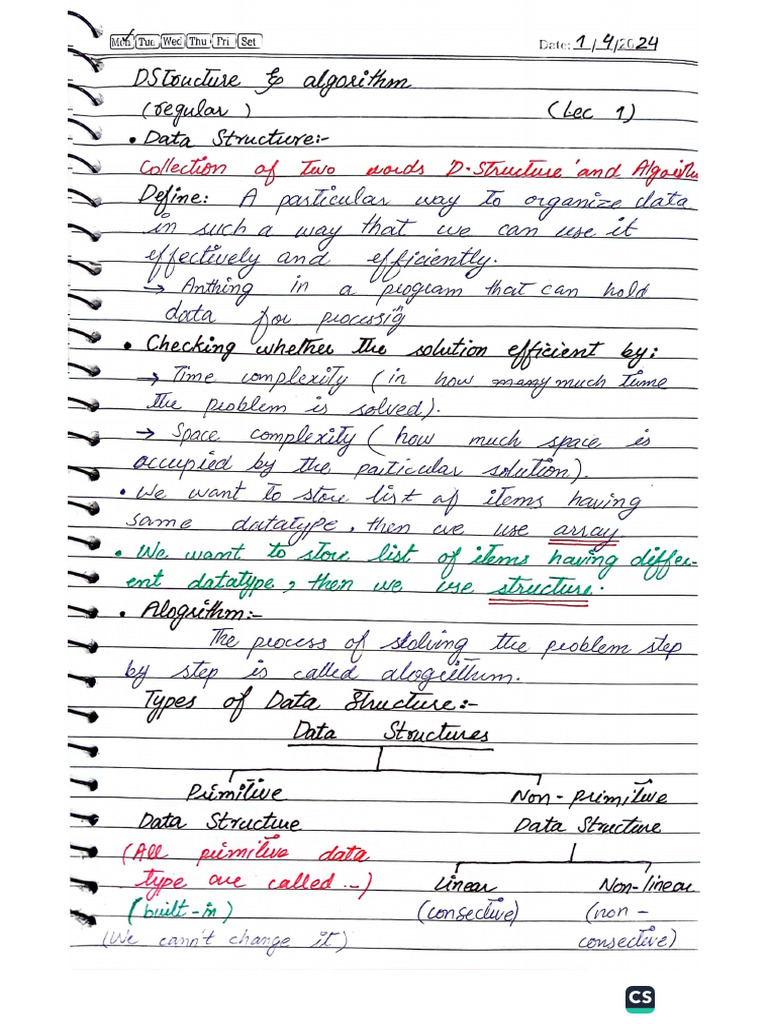 Mon Tue Wed Thu Fri Sat Date: 1/4/2024
DStructure & algorithm
(regular) (Lec 1)
• Data Structure:-
Collection of two words 'D.Structure' and Algorithm
Define: A particular way to organize data
in such a way that we can use it
effectively and efficiently.
→ Anthing in a program that can hold
data for processig
• Checking whether the solution efficient by:
→ Time complexity (in how much time
the problem is solved).
→ Space complexity (how much space is
occupied by the particular solution).
• We want to store list of items having
same datatype, then we use array
• We want to store list of items having differ-
ent datatype, then we use structure.
• Alogrithm:-
The process of solving the problem step
by step is called alogrithm.
Types of Data Structure:-
Data Structures
Primitive Non-primitive
Data Structure Data Structure
(All primitive data
type are called --) Linear Non-linear
(built-in) (consective) (non -
(We cann't change it) consective)
CS